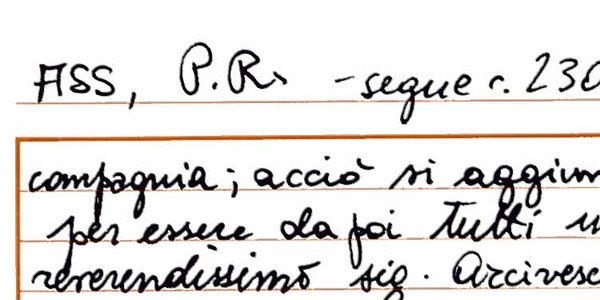 ASS, P.R. - segue c. 230
compagnia; acciò si aggiun
per essere da poi tutti u
reverendissimo sig. Arcivesc